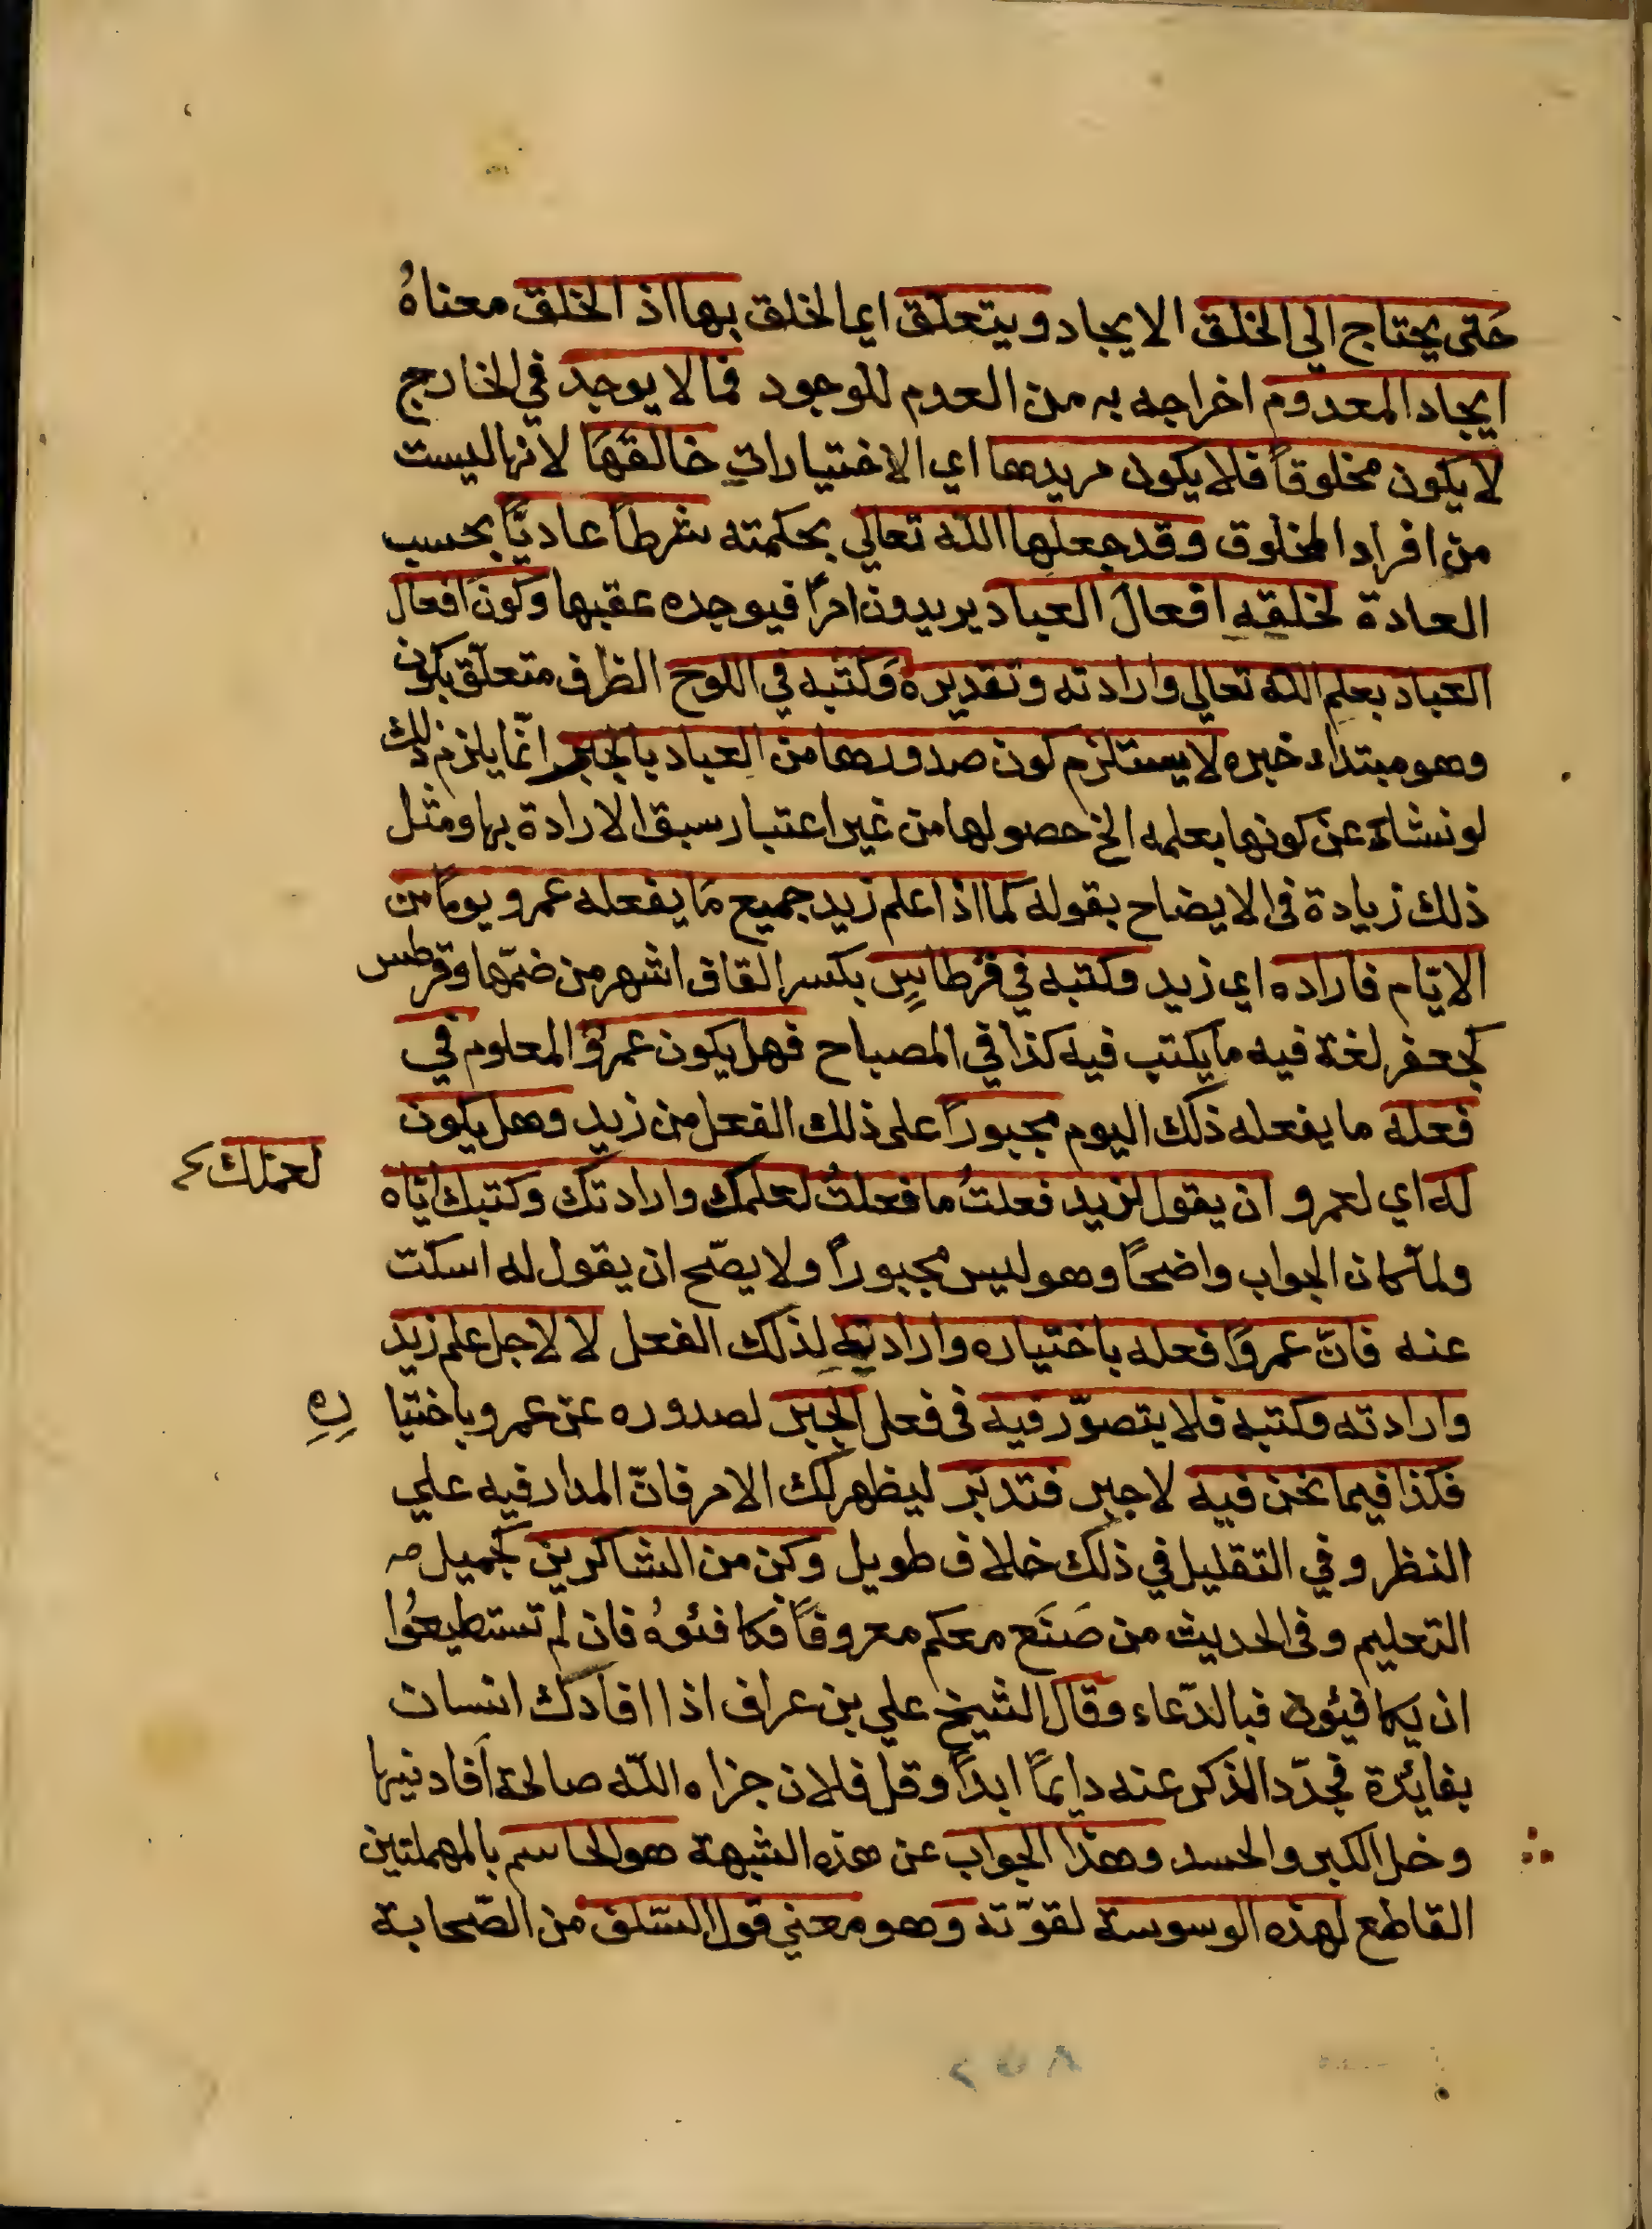 حَتى يحتاج الي الخلق الايجاد ويتعلّق ايما لخلق بها اذ الخلق معناهُ
ايجاد المعدوم اخراجه به من العدم للوجود فما لا يوجد في الخارج
لا يكون مخلوقاً فلا يكون مريدها اي الاختيارات خالقَهَا لانها ليست
من افراد المخلوق وقد جعلها الله تعالي بحكمته شرطاً عاديّاً بحسب
العادة لخلقه افعالَ العباد يريدون امراً فيوجده عقبها وكونَ افعال
العباد بعلم الله تعالي وارادته وتقديره وَكَتْبه في اللوح الظرف متعلّق بكون
وهو مبتداء خبره لا يستلزم كون صدورها من العباد بالجبر انّما يلزم ذلك
لو نشاء عن كونها بعلمه الخ حصولها من غير اعتبار سبق الارادة بها ومثل
ذلك زيادة في الايضاح بقوله كما اذا علم زيد جميع مَا يفعله عمرو يوماً من
الايّام فاراده اي زيد وكتبه في قرطاسٍ بكسر القاف اشهر من ضمّها وقرطس
كجعفر لغة فيه ما يكتب فيه كذا في المصباح فهل يكون عمرٌو المعلوم في
فعله ما يفعله ذلك اليوم مجبوراً على ذلك الفعل من زيد وهل يكون
له اي لعمرو ان يقول لزيد فعلتُ ما فعلتُ لعلمك وارادتك وكتبك ايّاه
لعملك
ولمّا كان الجواب واضحاً وهو ليس مجبوراً ولا يصّح ان يقول له اسكت
عنه فانّ عمروًا فعله باختياره وارادته لذلك الفعل لا لاجل علم زيد
وارادته وكتبه فلا يتصوّر فيه في فعل الجبر لصدوره عن عمرو باختيا رهِ
فكذا فيما نحن فيه لا جبر فتدبّر ليظهر لك الامر فانّ المدار فيه علي
النظر وفي التقليل في ذلك خلاف طويل وكن من الشاكرين لجميل
التعليم وفي الحديث من صَنَع معكم معروفاً فكافئوهُ فان لم تستطيعُوا
ان تكافئوه فبالدّعاء وقال الشيخ علي بن عراف اذا افادك انسان
بفائدة فجدّد الذكر عنه دايماً ابداً وقل فلان جزاه الله صالحة اَفادنيها
وخل الكبر والحسد وهذا الجواب عن هذه الشبهة هو الحاسم بالمهملتين
القاطع لهذه الوسوسة لقوّته وهو معني قول السّلف من الصّحابة